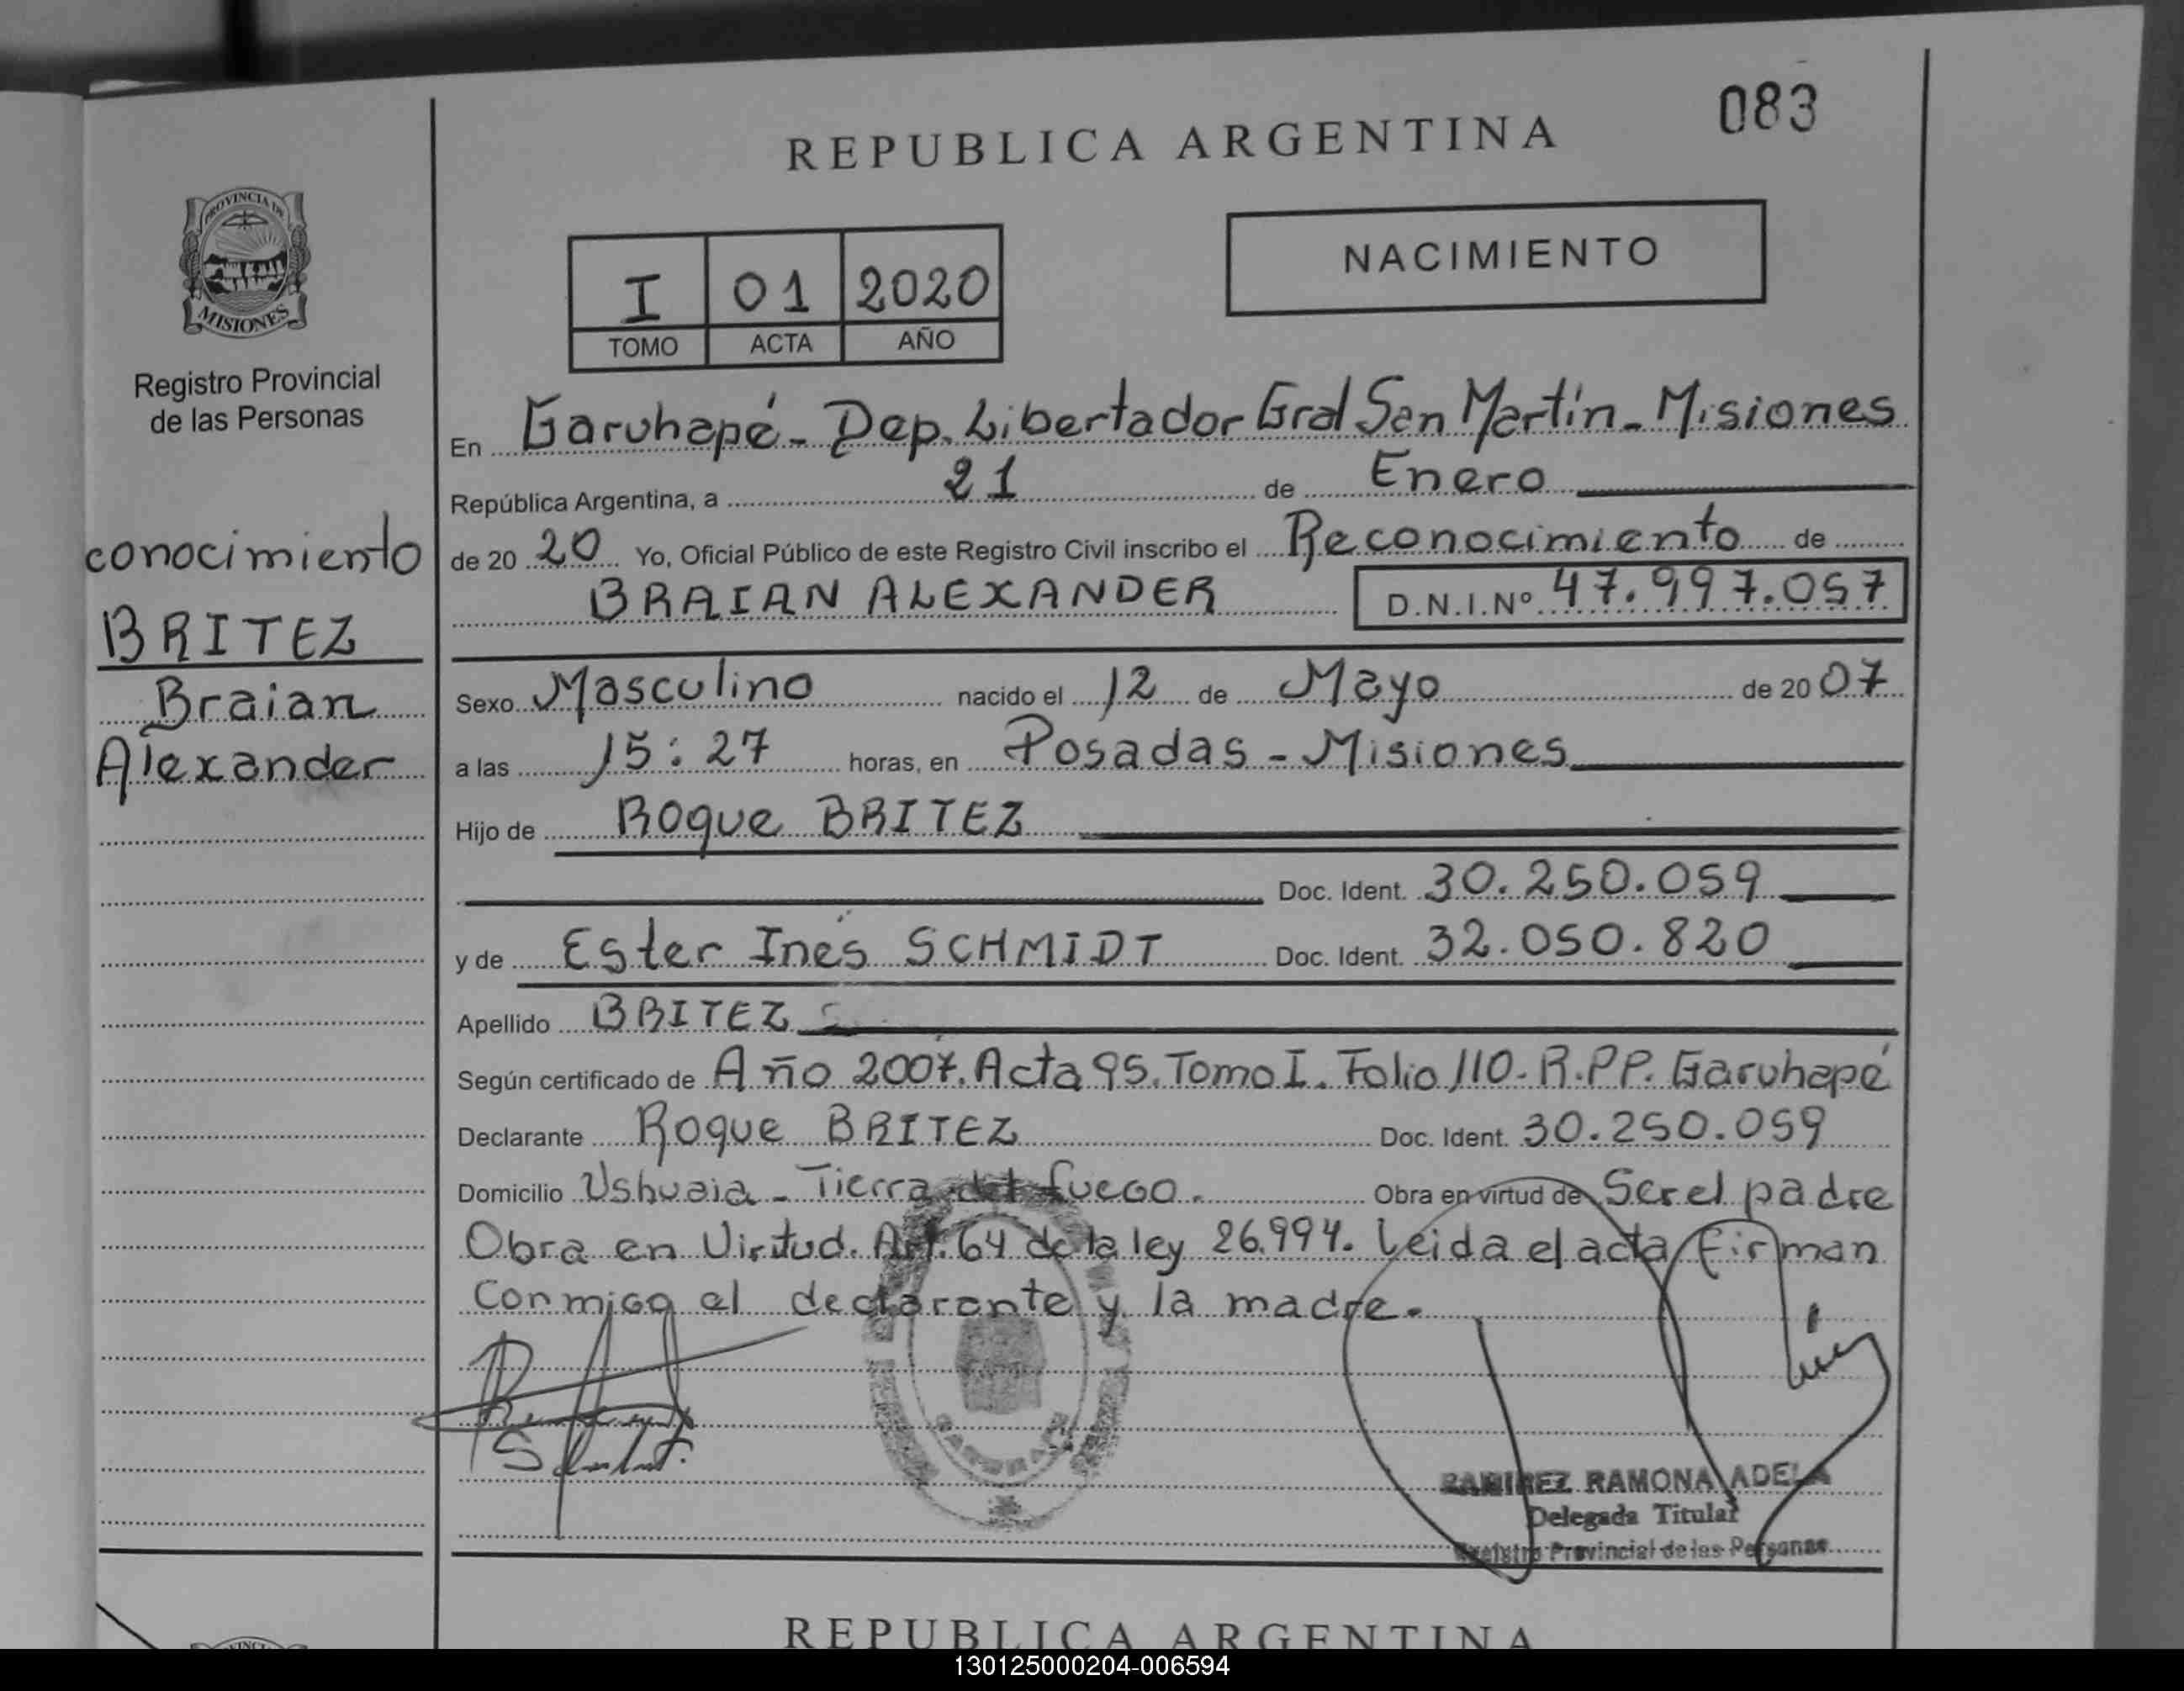 083
REPUBLICA ARGENTINA
PROVINCIA DE
MISIONES
Registro Provincial
de las Personas
conocimiento
BRITEZ
Braian
Alexander
I 01 2020
TOMO ACTA AÑO
NACIMIENTO
En Garuhapé - Dep. Libertador Gral San Martín - Misiones
República Argentina, a 21 de Enero
de 20 20 Yo, Oficial Público de este Registro Civil inscribo el Reconocimiento de
BRAIAN ALEXANDER D.N.I.Nº 47.997.057
Sexo Masculino nacido el 12 de Mayo de 20 07
a las 15:27 horas, en Posadas - Misiones
Hijo de Roque BRITEZ
Doc. Ident. 30.250.059
y de Ester Inés SCHMIDT Doc. Ident. 32.050.820
Apellido BRITEZ
Según certificado de Año 2007. Acta 95. Tomo I. Folio 110 - R.P.P. Garuhapé
Declarante Roque BRITEZ Doc. Ident. 30.250.059
Domicilio Ushuaia - Tierra del fuego. Obra en virtud de Ser el padre
Obra en Virtud. Art. 64 de la ley 26.994. Leida el acta firman
Conmigo el declarante y la madre.
RAMIREZ RAMONA ADELA
Delegada Titular
Registro Provincial de las Personas
REPUBLICA ARGENTINA
130125000204-006594